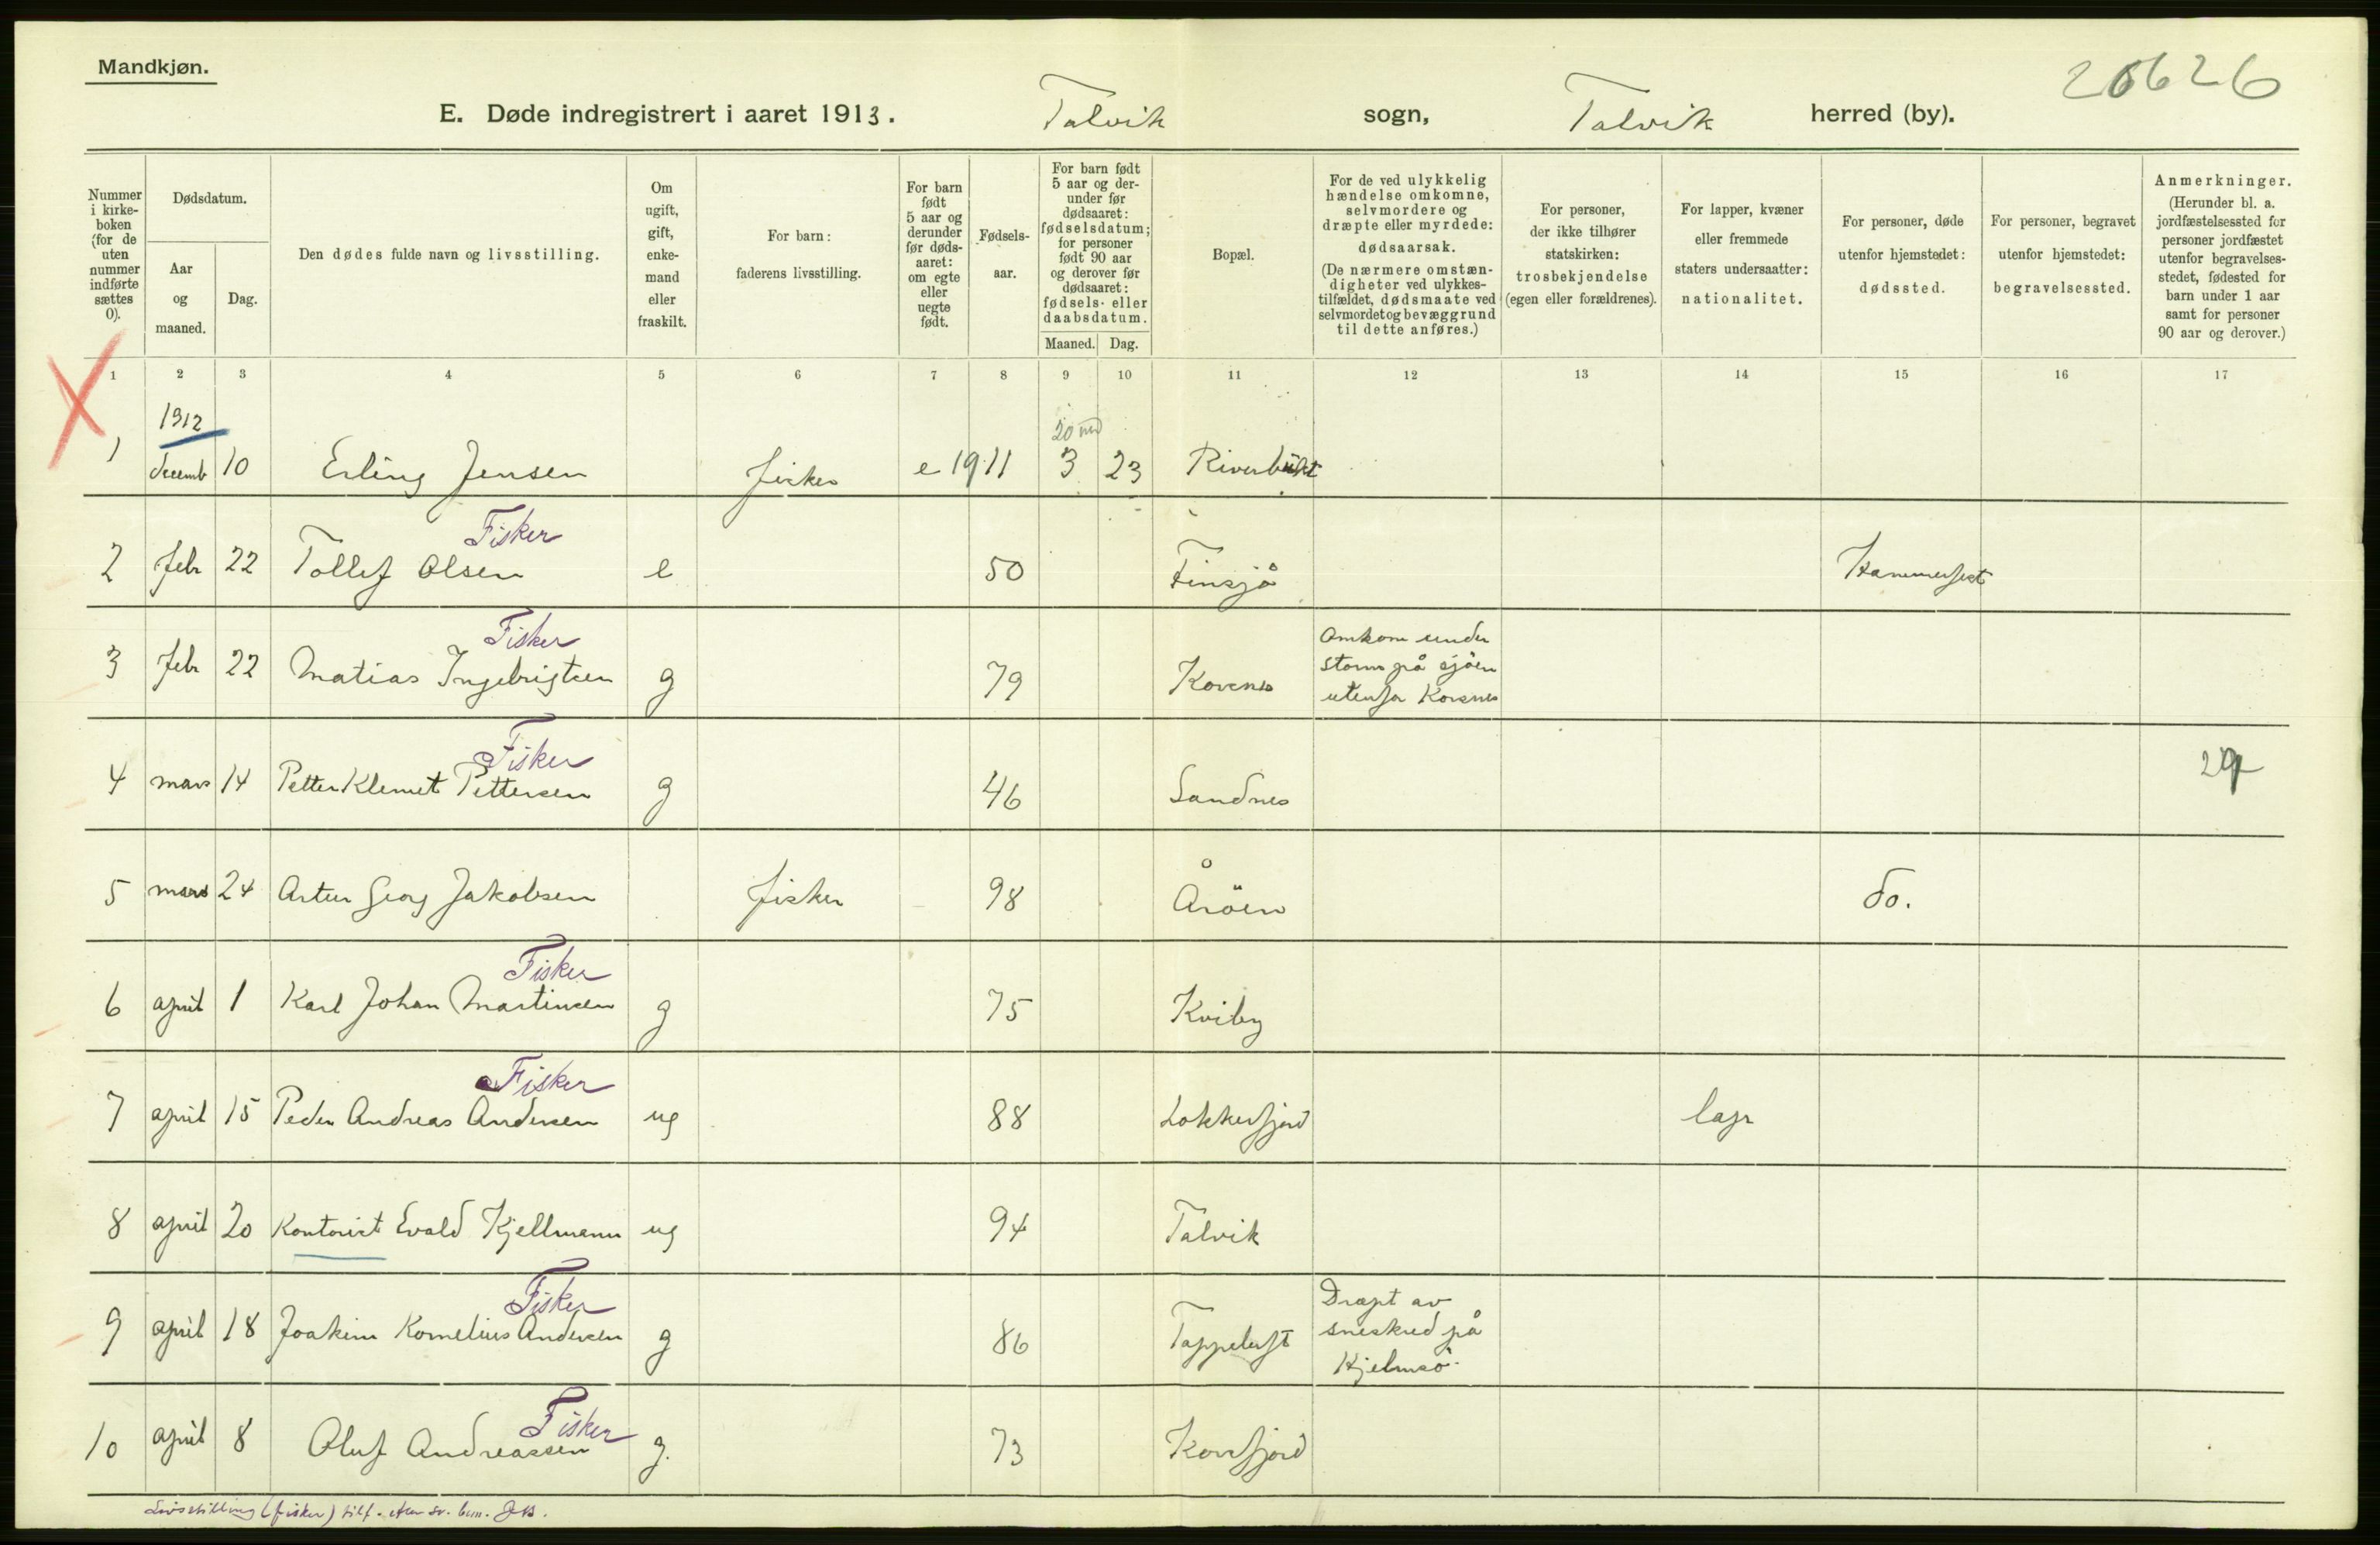 Mandkjøn.
20626
E. Døde indregistrert i aaret 1913. Talvik sogn, Talvik herred (by).
Nummer i kirke- boken (for de uten nummer indførte sættes 0).
Dødsdatum.
Aar og maaned.
Dag.
Den dødes fulde navn og livsstilling.
Om ugift, gift, enke- mand eller fraskilt.
For barn: faderens livsstilling.
For barn født 5 aar og derunder før døds- aaret: om egte eller uegte født.
Fødsels- aar.
For barn født 5 aar og der- under før dødsaaret: fødselsdatum; for personer født 90 aar og derover før dødsaaret: fødsels- eller daabsdatum.
Maaned. Dag.
Bopæl.
For de ved ulykkelig hændelse omkomne, selvmordere og dræpte eller myrdede: dødsaarsak. (De nærmere omstæn- digheter ved ulykkes- tilfældet, dødsmaate ved selvmordet og bevæggrund til dette anføres.)
For personer, der ikke tilhører statskirken: trosbekjendelse (egen eller forældrenes).
For lapper, kvæner eller fremmede staters undersaatter: nationalitet.
For personer, døde utenfor hjemstedet: dødssted.
For personer, begravet utenfor hjemstedet: begravelsessted.
Anmerkninger. (Herunder bl. a. jordfæstelsessted for personer jordfæstet utenfor begravelses- stedet, fødested for barn under 1 aar samt for personer 90 aar og derover.)
1 2 3 4 5 6 7 8 9 10 11 12 13 14 15 16 17
1912
20 md
1 decemb 10 Erling Jensen fisker e 1911 3 23 Riverbukt
Fisker
2 febr 22 Tollef Olsen e 50 Finsjå Hammerfest
Fisker
3 febr 22 Matias Ingebrigtsen g 79 Korsnes
Omkom under
storm på sjöen
utenfor Korsnes
Fisker
4 mars 14 Petter Klemet Pettersen g 46 Sandnes
5 mars 24 Artur Georg Jakobsen fisker 98 Åröen do.
Fisker
6 april 1 Karl Johan Martinsen g 75 Kviby
Fisker
7 april 15 Peder Andreas Andersen ug 88 Lokkerfjord lapp
8 april 20 Kontorist Evald Kjellmann ug 94 Talvik
Fisker
9 april 18 Joakim Kornelius Andersen g 86 Tappeluft
Dræpt av
sneskred på
Hjelmsö.
Fisker
10 april 8 Oluf Andreassen g. 73 Korsfjord
Livsstilling (fisker) tilf. efter sv. bem.